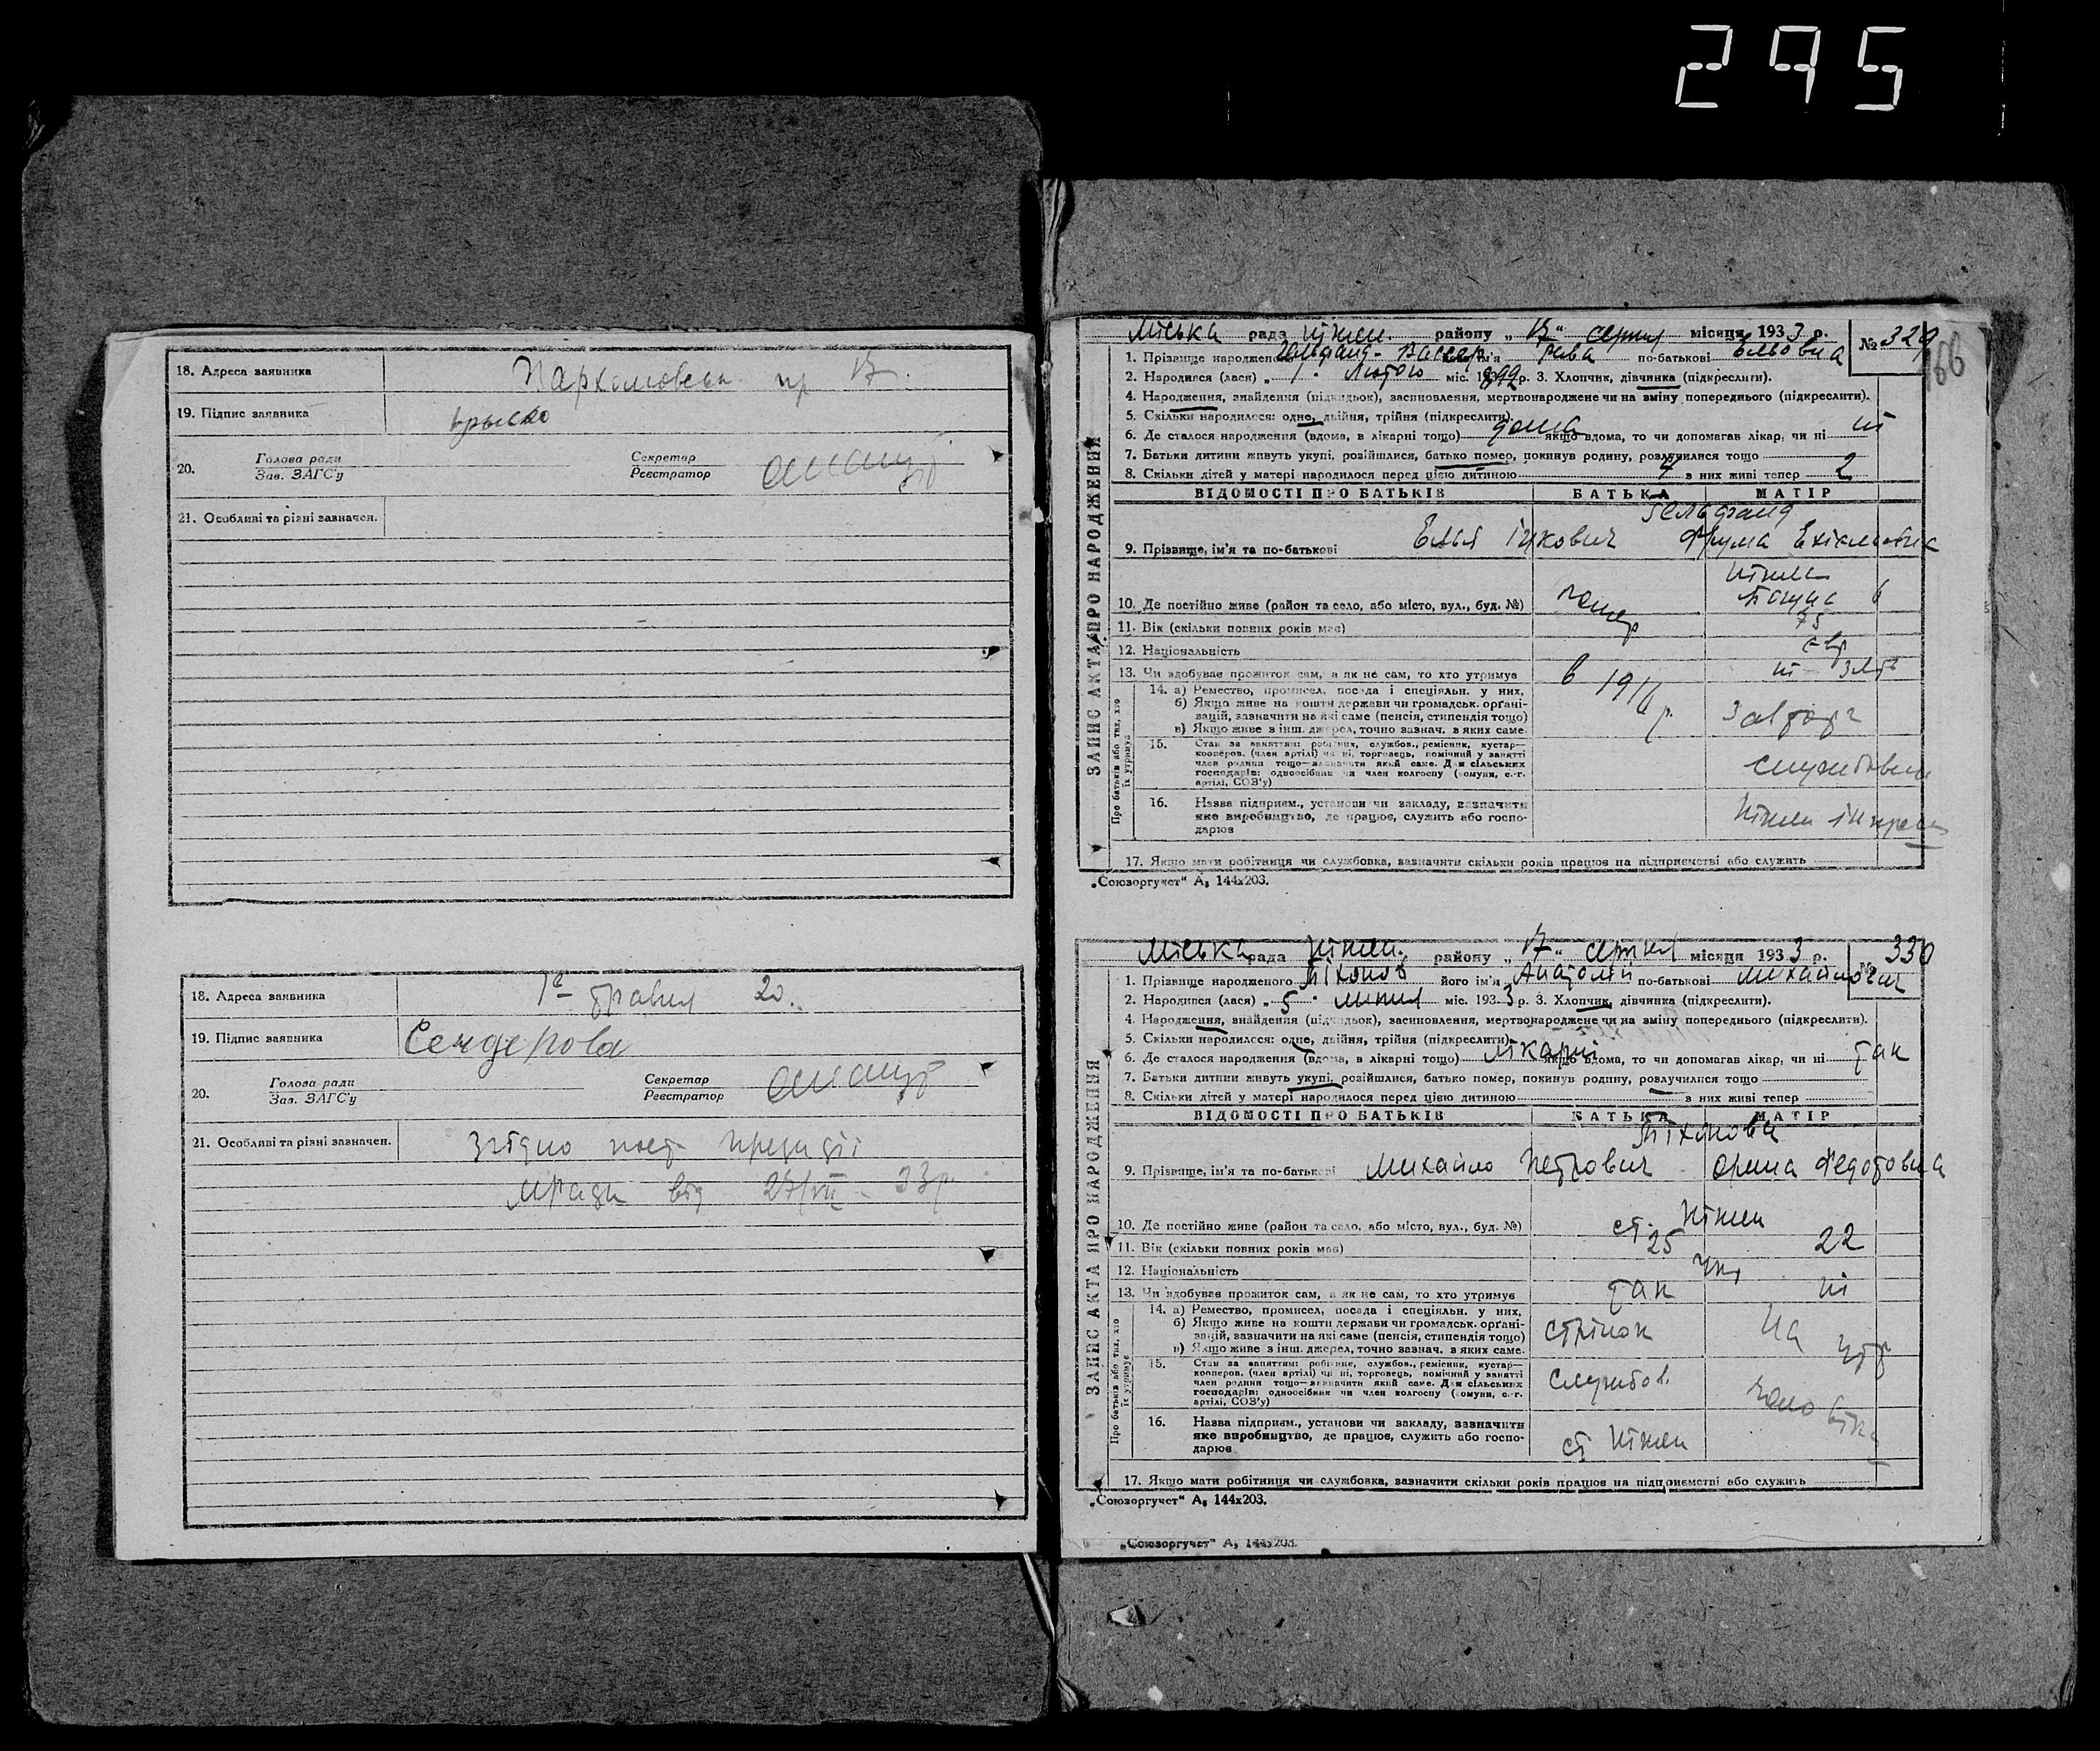 295
18. Адреса заявника Пархомовськ пр 17.
19. Підпис заявника
20. Голова ради Секретар
Зав. ЗАГС'у Реєстратор
21. Особливі та різні зазначен.
18. Адреса заявника 1е травня 20.
19. Підпис заявника Сендерова
20. Голова ради Секретар
Зав. ЗАГС'у Реєстратор
21. Особливі та різні зазначен. Згідно пост президії
від 27/VII - 33р.
166
ЗАПИС АКТА ПРО НАРОДЖЕННЯ
Міська рада Ніжен. району „17" серпня місяця 1933 р. № 329
1. Прізвище народженого Гельфанд-Вассер його ім'я Рива по-батькові Ельовна
2. Народився (лася) „1" Лютого міс. 1899 р. 3. Хлопчик, дівчинка (підкреслити).
4. Народження, знайдення (підкидьок), засиновлення, мертвонароджене чи на зміну попереднього (підкреслити).
5. Скільки народилося: одне, двійня, трійня (підкреслити).
6. Де сталося народження (вдома, в лікарні тощо) дома якщо вдома, то чи допомагав лікар, чи ні ні
7. Батьки дитини живуть укупі, розійшлися, батько помер, покинув родину, розлучилися тощо
8. Скільки дітей у матері народилося перед цією дитиною 4 з них живі тепер 2
ВІДОМОСТІ ПРО БАТЬКІВ БАТЬКА МАТІР
Гельфанд
9. Прізвище, ім'я та по-батькові Елья Іцкович Фрума
Ніжен
10. Де постійно живе (район та село, або місто, вул., буд. №) помер 6
11. Вік (скільки повних років має) 75
12. Національність євр
13. Чи здобуває прожиток сам, а як не сам, то хто утримує в 1916 р. ні зять
Про батьків або тих, хто їх утримує
14. а) Ремество, промисел, посада і спеціяльн. у них,
б) Якщо живе на кошти держави чи громадськ. органі-
зацій, зазначити на які саме (пенсія, стипендія тощо)
в) Якщо живе з інш. джерел, точно зазнач. з яких саме.
15. Стан за заняттям: робітник, службов., ремісник, кустар—
кооперов. (член артілі) чи ні, торговець, помічний у занятті
член родини тощо—зазначити який саме. Для сільських
господарів: одноосібник чи член колгоспу (комуни, с.-г.
артілі, СОЗ'у) службовець
16. Назва підприєм., установи чи закладу, зазначити
яке виробництво, де працює, служить або госпо-
дарює Ніжен
17. Якщо мати робітниця чи службовка, зазначити скільки років працює на підприємстві або служить
„Союзоргучет" А, 144х203.
ЗАПИС АКТА ПРО НАРОДЖЕННЯ
Міська рада Ніжен. району „17" серпня місяця 1933 р. № 330
1. Прізвище народженого Тіхонов його ім'я Анатолій по-батькові Михайлович
2. Народився (лася) „5" липня міс. 1933 р. 3. Хлопчик, дівчинка (підкреслити).
4. Народження, знайдення (підкидьок), засиновлення, мертвонароджене чи на зміну попереднього (підкреслити).
5. Скільки народилося: одне, двійня, трійня (підкреслити).
6. Де сталося народження (вдома, в лікарні тощо) лікарні якщо вдома, то чи допомагав лікар, чи ні так
7. Батьки дитини живуть укупі, розійшлися, батько помер, покинув родину, розлучилися тощо
8. Скільки дітей у матері народилося перед цією дитиною — з них живі тепер
ВІДОМОСТІ ПРО БАТЬКІВ БАТЬКА МАТІР
Тіхонови
9. Прізвище, ім'я та по-батькові Михайло Петрович Орина Федотовна
10. Де постійно живе (район та село, або місто, вул., буд. №) ст. Ніжен
11. Вік (скільки повних років має) 25 22
12. Національність Укр
13. Чи здобуває прожиток сам, а як не сам, то хто утримує так ні
Про батьків або тих, хто їх утримує
14. а) Ремество, промисел, посада і спеціяльн. у них,
б) Якщо живе на кошти держави чи громадськ. органі-
зацій, зазначити на які саме (пенсія, стипендія тощо)
в) Якщо живе з інш. джерел, точно зазнач. з яких саме. стрілок На утр
15. Стан за заняттям: робітник, службов., ремісник, кустар—
кооперов. (член артілі) чи ні, торговець, помічний у занятті
член родини тощо—зазначити який саме. Для сільських
господарів: одноосібник чи член колгоспу (комуни, с.-г.
артілі, СОЗ'у) службов. чоловіка
16. Назва підприєм., установи чи закладу, зазначити
яке виробництво, де працює, служить або госпо-
дарює ст Ніжен
17. Якщо мати робітниця чи службовка, зазначити скільки років працює на підприємстві або служить
„Союзоргучет" А, 144х203.
„Союзоргучет" А, 144х203.